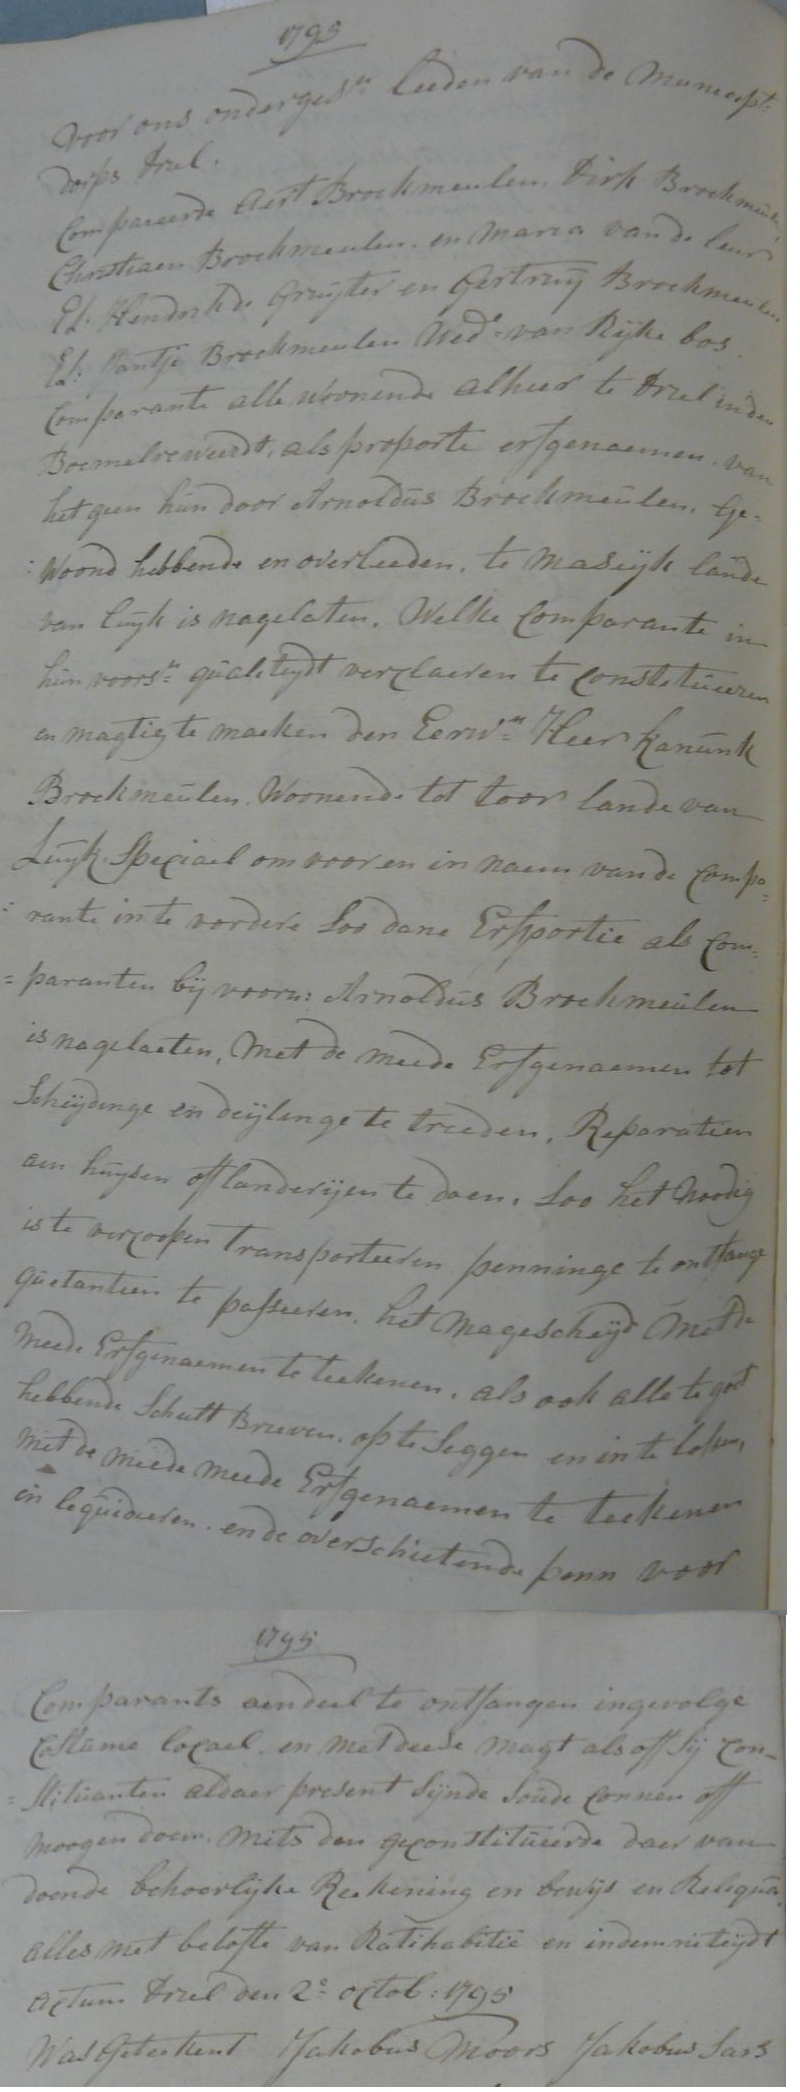 1795
voor ons ondergesn leeden van de Municipt:
dorps Driel.
Compareerde Aert Broekmeulen, Dirk Broekmeulen,
Christiaen Broekmeulen. en Maria van de Leur
El: Hendrik de Gruyter en Gertruij Broekmeulen
El: Jantje Broekmeulen Wede. van Rijke bos.
Comparante alle woonende alhier te Driel in den
Boemelreweerdt, als proporte erfgenaemen. van
het geen hun door Arnoldus Broekmeulen, Ge-
:woond hebbende en overleeden. te Maseijk lande
van luyk is nagelaten. Welke Comparante in
hun voorsn: qualiteydt verclaeren te Constitueeren
en magtig te maeken den Eerwn Heer kanunk
Broekmeulen. Woonende tot loor lande van
Luyk. Speciael om voor en in naem van de Compa=
:rante in te vordere soo dane Erfportie als Com=
=paranten bij voorn: Arnoldus Broekmeulen
is nagelaeten, Met de meede Erfgenaemen tot
Scheijdinge en deijlinge te treeden, Reparatien
aen huysen off landerijen te doen, Soo het Noodig
is te vercoopen Transporteeren penninge te ontfange
quetantien te passeeren. het Magescheijd Met de
Meede Erfgenaemen te teekenen. als ook alle te goet
hebbende Schult Brieven. op te Seggen en in te lossen,
Met de meede meede Erfgenaemen te teekenen
en lequideeren. en de overschietende penn voor
1795
Comparants aendeel te ontfangen ingevolge
Costume locael. en met deese magt als off Sij Con-
=stituanten aldaer present Sijnde Soude Connen off
moogen doen. mits den geconstitueerde daer van
doende behoorlijke Reekening en bewijs en Reliqua,
alles met belofte van Ratihabitie en indemniteijdt
Actum Driel den 2e octob: 1795
Was Geteekent Jakobus Moors Jakobus Sars